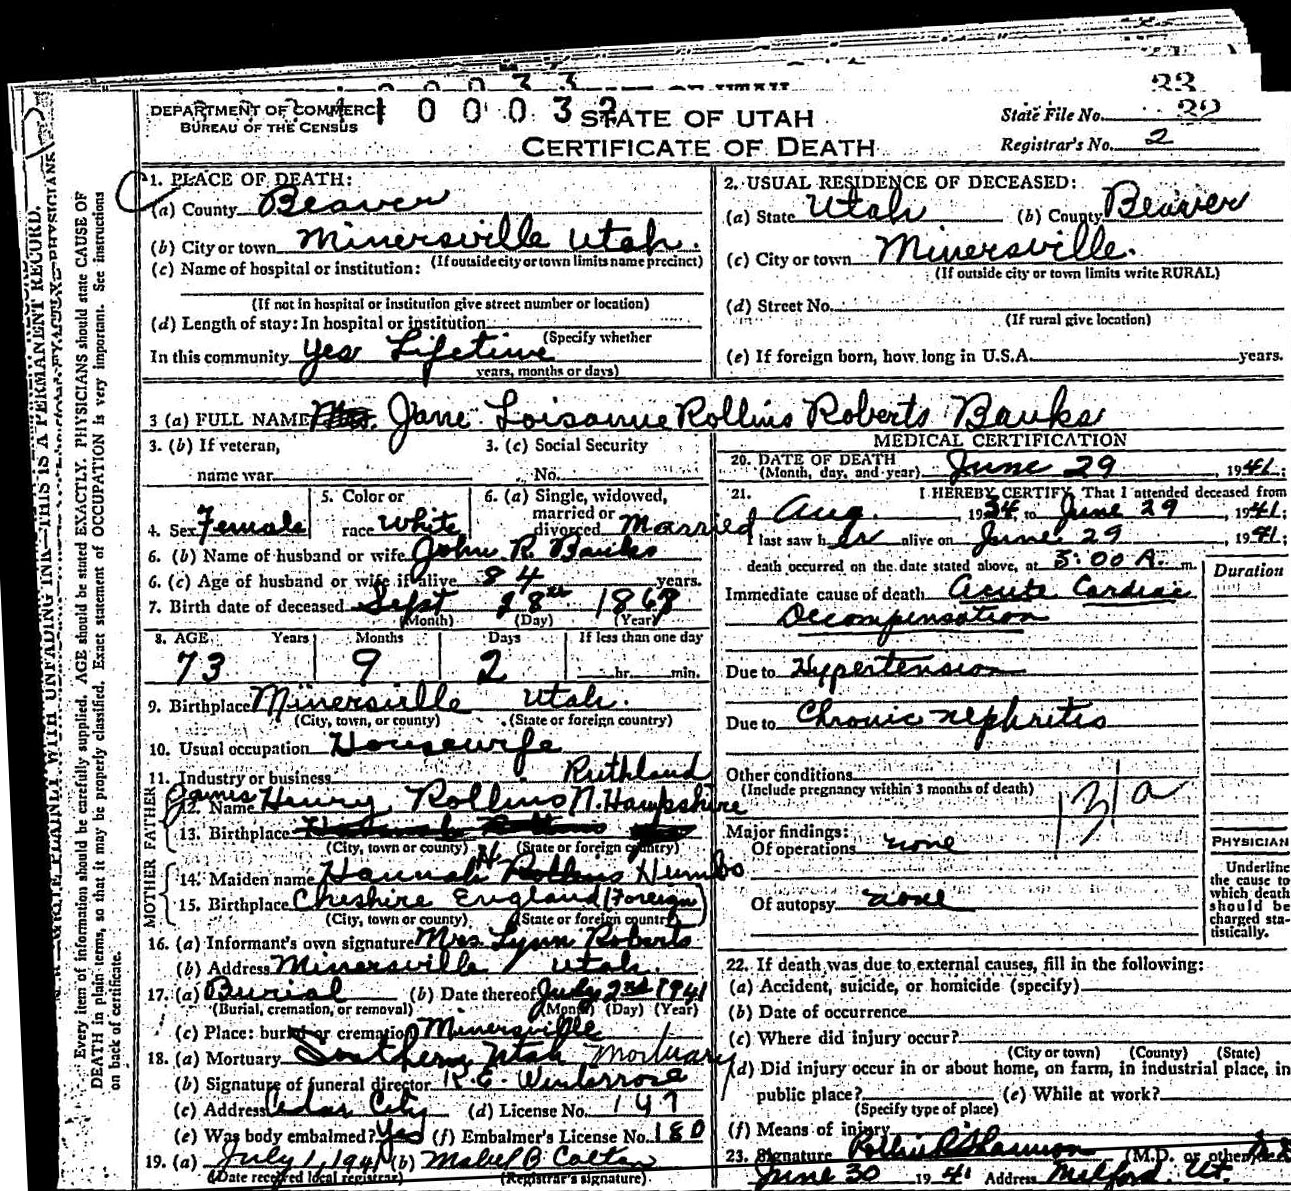 33
100033
OF UTAH
DEPARTMENT OF COMMERC
BUREAU OF THE CENSUS
1 0 0 0 3 2
STATE OF UTAH
CERTIFICATE OF DEATH
State File No. 32
Registrar's No. 2
1. PLACE OF DEATH:
(a) County Beaver
(b) City or town Minersville Utah.
(If outside city or town limits name precinct)
(c) Name of hospital or institution:
(If not in hospital or institution give street number or location)
(d) Length of stay: In hospital or institution
(Specify whether
In this community yes Lifetime
years, months or days)
2. USUAL RESIDENCE OF DECEASED:
(a) State Utah (b) County Beaver
(c) City or town Minersville.
(If outside city or town limits write RURAL)
(d) Street No.
(If rural give location)
(e) If foreign born, how long in U.S.A. years.
3 (a) FULL NAME Jane Loisanne Rollins Roberts Banks
3. (b) If veteran,
name war
3. (c) Social Security
No.
4. Sex Female
5. Color or
race White
6. (a) Single, widowed,
married or
divorced Married
6. (b) Name of husband or wife John R. Banks
6. (c) Age of husband or wife if alive 84 years.
7. Birth date of deceased Sept 28th 1867
(Month) (Day) (Year)
8. AGE Years Months Days If less than one day
73 9 2 hr. min.
9. Birthplace Minersville Utah.
(City, town, or county) (State or foreign country)
10. Usual occupation Housewife
11. Industry or business
Ruthland
FATHER
12. Name James Henry Rollins N. Hampshire
13. Birthplace
(City, town or county) (State or foreign country)
MOTHER
14. Maiden name Hannah H. Humbo
15. Birthplace Cheshire England (Foreign)
(City, town or county) (State or foreign country)
16. (a) Informant's own signature Mrs. Lynn Roberts
(b) Address Minersville Utah.
17. (a) Burial (b) Date thereof July 2nd 1941
(Burial, cremation, or removal) (Month) (Day) (Year)
(c) Place: burial or cremation Minersville
18. (a) Mortuary Southern Utah Mortuary
(b) Signature of funeral director R.E. Winterrose
(c) Address Cedar City (d) License No. 147
(e) Was body embalmed? Yes (f) Embalmer's License No. 180
19. (a) July 1, 1941 (b) Mabel B Colten
(Date received local registrar) (Registrar's signature)
MEDICAL CERTIFICATION
20. DATE OF DEATH
(Month, day, and year) June 29, 1941;
21. I HEREBY CERTIFY, That I attended deceased from
Aug., 1934 to June 29, 1941;
last saw her alive on June 29, 1941;
death occurred on the date stated above, at 5:00 A. m.
Duration
Immediate cause of death Acute Cardiac
Decompensation
Due to Hypertension
Due to Chronic nephritis
Other conditions
(Include pregnancy within 3 months of death)
131a
Major findings:
Of operations none
Of autopsy none
PHYSICIAN
Underline
the cause to
which death
should be
charged sta-
tistically.
22. If death was due to external causes, fill in the following:
(a) Accident, suicide, or homicide (specify)
(b) Date of occurrence
(c) Where did injury occur?
(City or town) (County) (State)
(d) Did injury occur in or about home, on farm, in industrial place, in
public place? (e) While at work?
(Specify type of place)
(f) Means of injury
23. Signature Shannon (M.D. or other)
June 30 1941 Address Milford, Ut.
WRITE PLAINLY WITH UNFADING INK—THIS IS A PERMANENT RECORD.
Every item of information should be carefully supplied. AGE should be stated EXACTLY. PHYSICIANS should state CAUSE OF
DEATH in plain terms, so that it may be properly classified. Exact statement of OCCUPATION is very important. See instructions
on back of certificate.